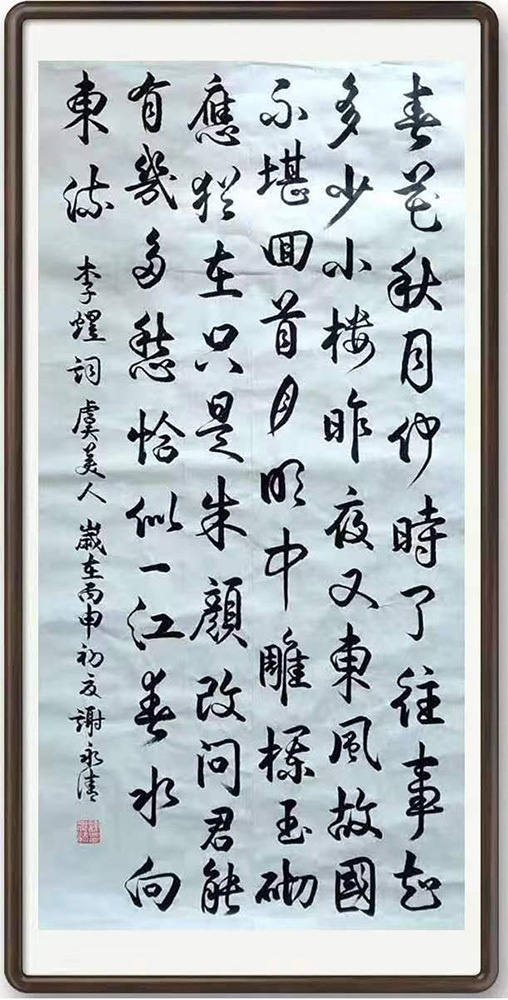 春花秋月何時了往事知
多少小楼昨夜又東風故國
不堪回首月明中雕欄玉砌
應猶在只是朱顏改問君能
有幾多愁恰似一江春水向
東流
李煜詞虞美人歲在丙申初夏謝永清